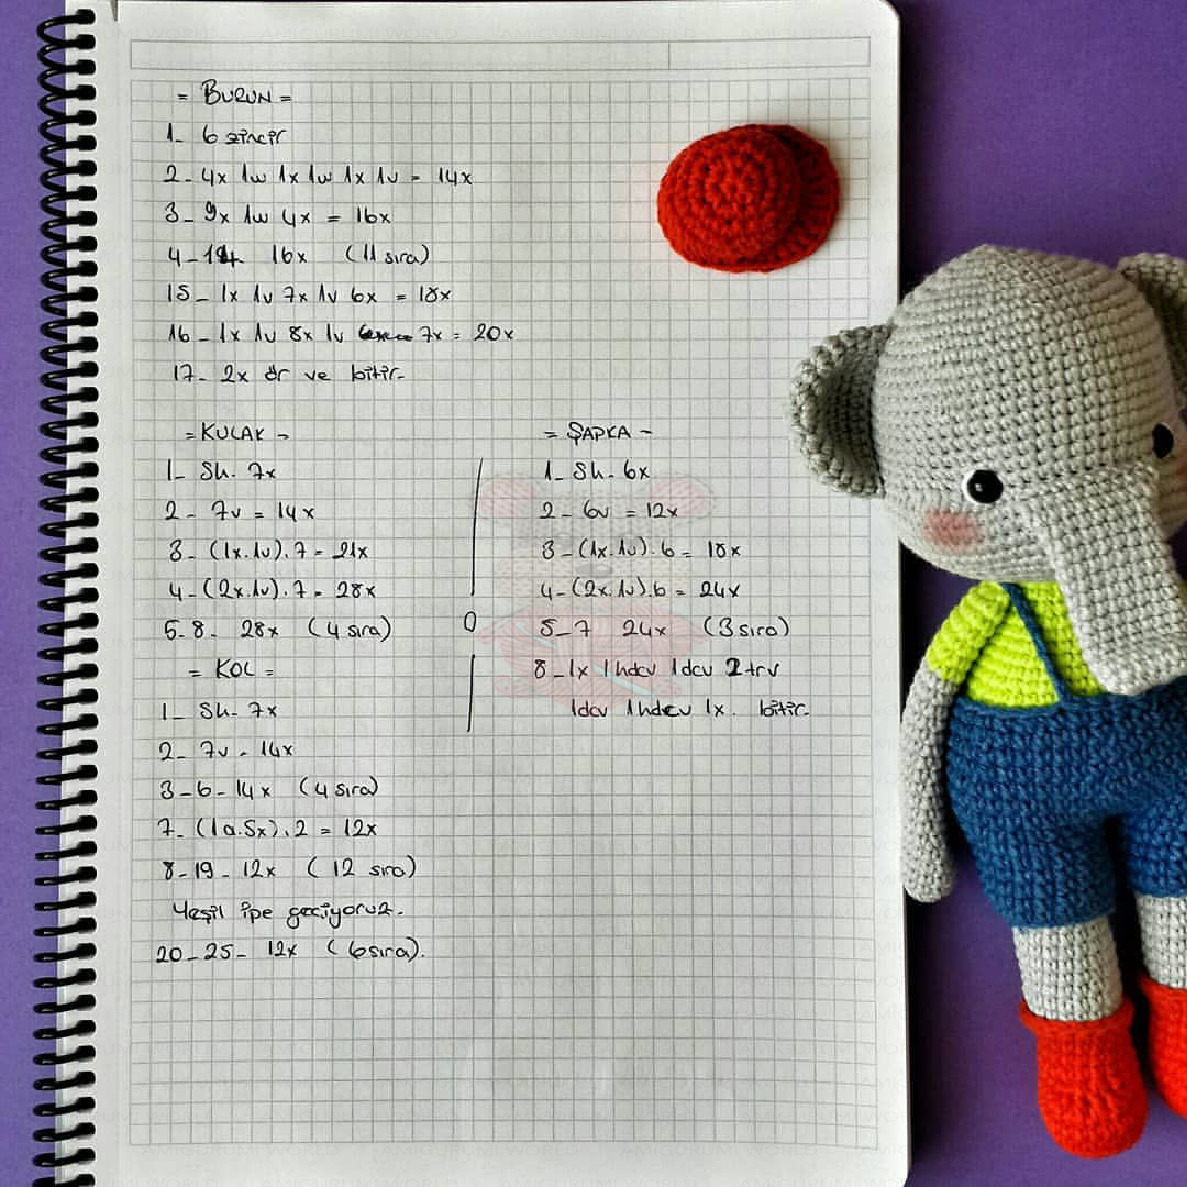 = BURUN =
1_ 6 zincir
2_ 4x 1w 1x 1w 1x 1v = 14x
3_ 9x 1w 4x = 16x
4_14 16x (11 sıra)
15_ 1x 1v 7x 1v 6x = 18x
16_ 1x 1v 8x 1v 7x = 20x
17_ 2x ör ve bitir.
= KULAK =
1_ Sh. 7x
2_ 7v = 14x
3_ (1x.1v).7 = 21x
4_ (2x.1v).7 = 28x
5_8_ 28x (4 sıra)
= KOL =
1_ Sh. 7x
2_ 7v = 14x
3_6_ 14x (4 sıra)
7_ (1a.5x).2 = 12x
8_19_ 12x (12 sıra)
Yeşil ipe geçiyoruz.
20_25_ 12x (6 sıra).
= ŞAPKA =
1_ Sh. 6x
2_ 6v = 12x
3_ (1x.1v).6 = 18x
4_ (2x.1v).6 = 24x
5_7 24x (3 sıra)
8_ 1x 1hdcv 1dcv 2trv
1dcv 1hdcv 1x. bitir.